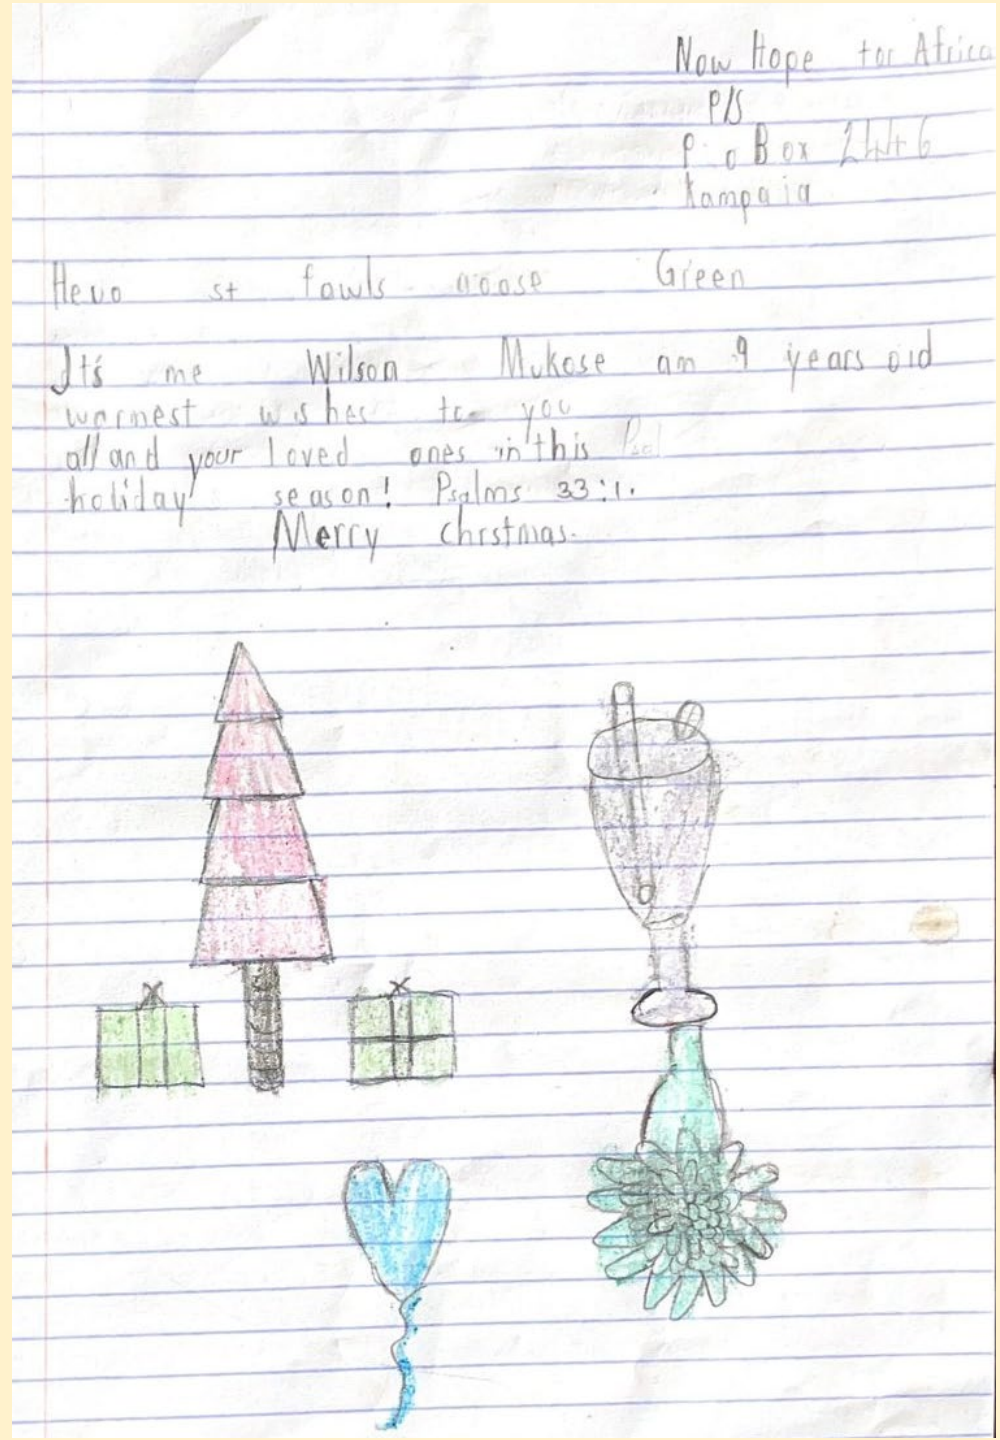 Now Hope for Africa
P/S
P.O Box 2446
Kampala
Hello st fowls goose Green
It's me Wilson Mukose am 9 years old
warmest wishes to you
all and your loved ones in this
holiday season! Psalms 33:1.
Merry Chrstmas.